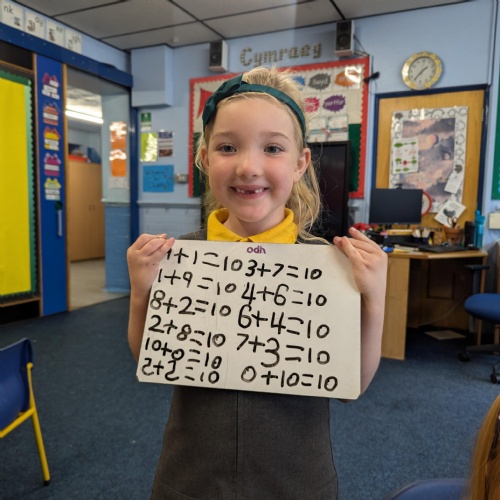 Cymraeg
odh
9+1=10 3+7=10
1+9=10 4+6=10
8+2=10 6+4=10
2+8=10 7+3=10
10+0=10 0+10=10
5+5=10